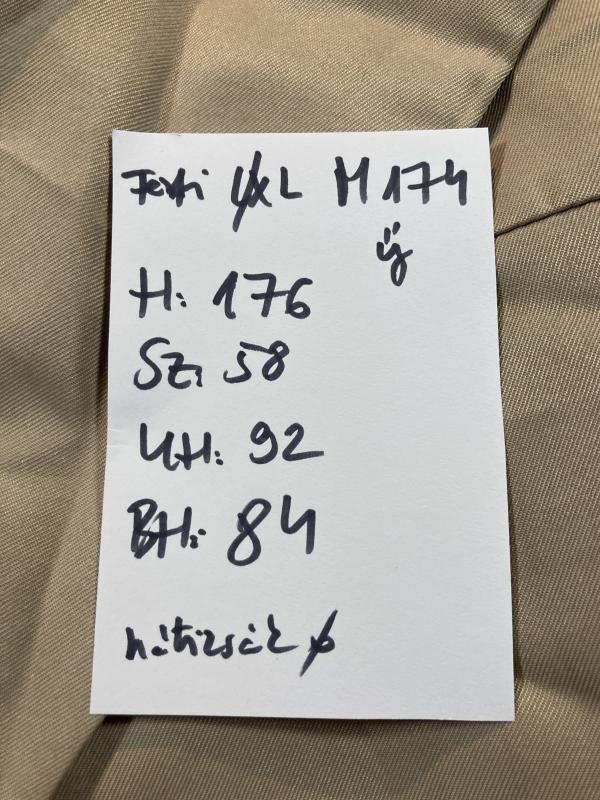 Férfi 4XL M 174
új
H: 176
Sz: 58
UH: 92
BH: 84
hátizsák ø